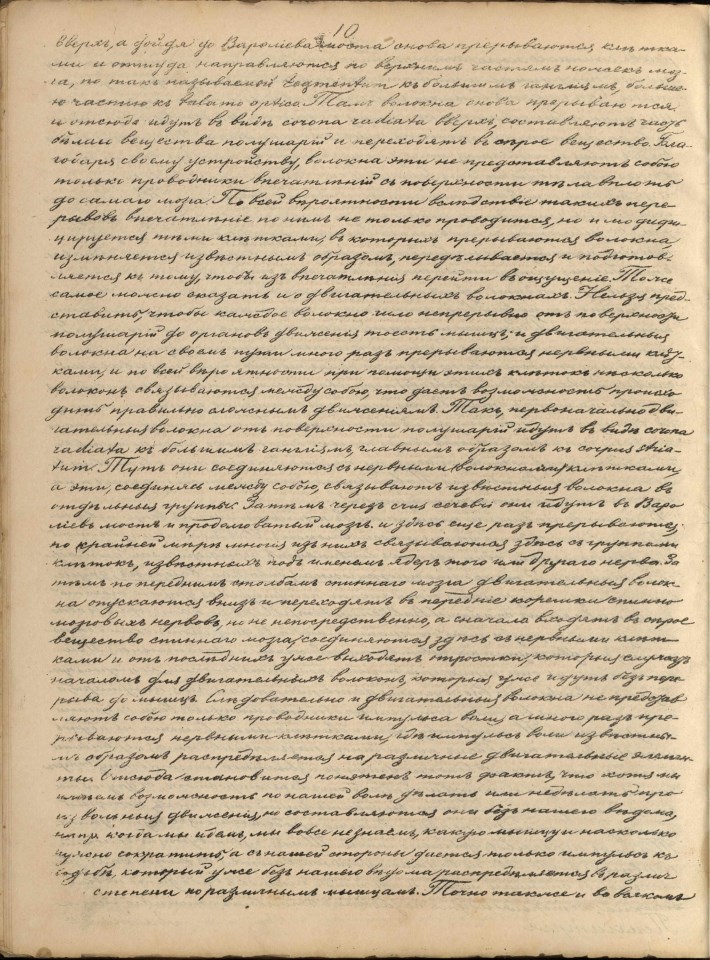 10.
вверхъ, а дойдя до Вароліева моста снова прерываются клѣтка-
ми и оттуда направляются по верхнимъ частямъ ножекъ моз-
га, по такъ называемой tegmentum къ большимъ гангліямъ, больше-
ю частію къ talamo optico. Тамъ волокна снова прерываются
и отсюда идутъ въ видѣ corona radiata вверхъ, составляютъ часть
бѣлаго вещества полушарій и переходятъ въ сѣрое вещество. Бла-
годаря своему устройству, волокна эти не представляютъ собою
только проводники впечатлѣній съ поверхности тѣла вплоть
до самаго мозга. По всей вѣроятности вслѣдствіе такихъ пере-
рывовъ впечатлѣніе по нимъ не только проводится, но и модифи-
цируется тѣми клѣтками, въ которыхъ прерываются волокна
измѣняется извѣстнымъ образомъ, передѣлывается и подготов-
ляется къ тому, чтобъ изъ впечатлѣнія перейти въ ощущеніе. Тоже
самое можно сказать и о двигательныхъ волокнахъ. Нельзя пред-
ставить, чтобы каждое волокно шло непрерывно отъ поверхности
полушарій до органовъ движенія тоесть мышцъ; и двигательныя
волокна на своемъ пути много разъ прерываются нервными клѣт-
ками, и по всей вѣроятности при помощи этихъ клѣтокъ нѣсколько
волоконъ связываются между собою, что даетъ возможность происхо-
дить правильно сложнымъ движеніямъ. Такъ, первоначально дви-
гательныя волокна отъ поверхности полушарій идутъ въ видѣ corona
radiata къ большимъ гангліямъ, главнымъ образомъ къ corpus stria-
tum. Тутъ они соединяются съ нервными клѣтками,
а эти, соединяясь между собою, связываютъ извѣстныя волокна въ
отдѣльныя группы. Затѣмъ черезъ они идутъ въ Варо-
ліевъ мостъ и продолговатый мозгъ. и здѣсь еще разъ прерываются;
по крайней мѣрѣ многія изъ нихъ связываются здѣсь съ группами
клѣтокъ, извѣстныхъ подъ именемъ ядеръ того или другаго нерва. За-
тѣмъ по переднимъ столбамъ спиннаго мозга двигательныя волок-
на спускаются внизъ и переходятъ въ передніе корешки спинно
мозговыхъ нервовъ, но не непосредственно, а сначала входятъ въ сѣрое
вещество спиннаго мозга, соединяются здѣсь съ нервными клѣт-
ками и отъ послѣднихъ уже выходятъ отростки, которыя служатъ
началомъ для двигательныхъ волоконъ, которыя уже идутъ безъ пере-
рыва до мышцъ. Слѣдовательно и двигательныя волокна не представ-
ляютъ собою только проводники импульса воли, а много разъ пре-
рываются нервными клѣтками, гдѣ импульсъ воли извѣстны-
мъ образомъ распредѣляется на различные двигательные элемен-
ты. Отсюда становится понятенъ тотъ фактъ, что хотя мы
имѣемъ возможность по нашей волѣ дѣлать или не дѣлать про-
извольныя движенія, но составляются они безъ нашего вѣдома,
напр. когда мы идемъ, мы вовсе не знаемъ, какую мышцу и насколько
нужно сократить, а съ нашей стороны дается только импульсъ къ
ходьбѣ, который уже безъ нашего вѣдома распредѣляется въ различ
степени по различнымъ мышцамъ. Точно также и во всякомъ